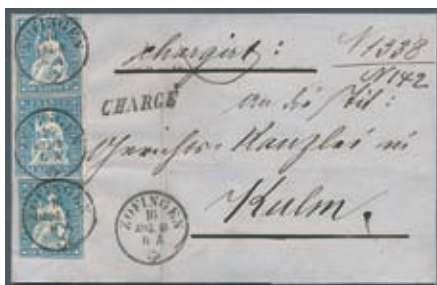 chargirt:
N 1338
N 142
CHARGÉ
An die Tit:
Gerichts-Kanzlei in
Kulm.
ZOFINGEN
ZOFINGEN
18